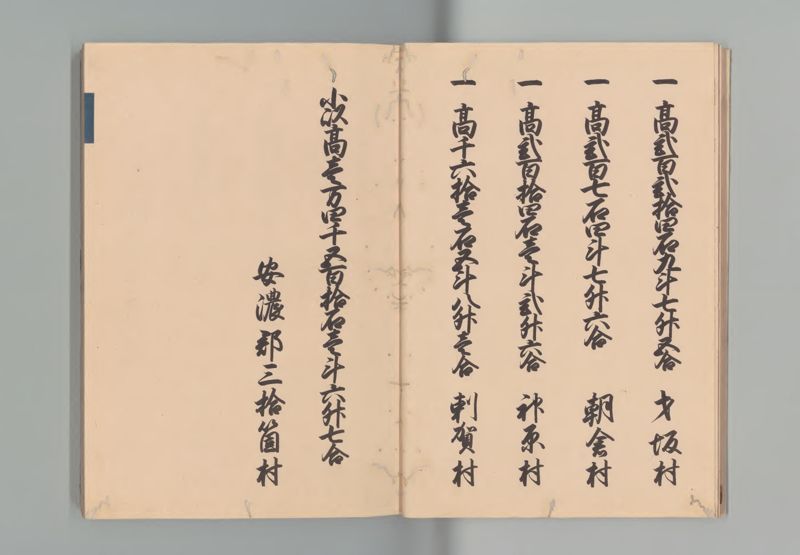 一 高弐百弐拾四石九斗七升五合 才坂村
一 高弐百七石四斗七升六合 朝倉村
一 高弐百拾四石壱斗弐升六合 神原村
一 高千六拾壱石五斗八升壱合 刺賀村
小以高壱万四千五百拾石壱斗六升七合
安濃郡三拾箇村